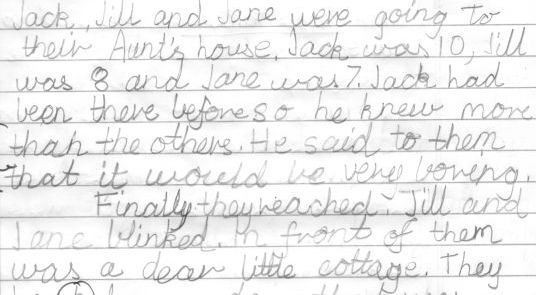 Jack, Jill and Jane were going to
their Aunt's house. Jack was 10, Jill
was 8 and Jane was 7. Jack had
been there before so he knew more
than the others. He said to them
that it would be very boreng.
Finally they reached. Jill and
Jane blinked. In front of them
was a dear little cottage. They